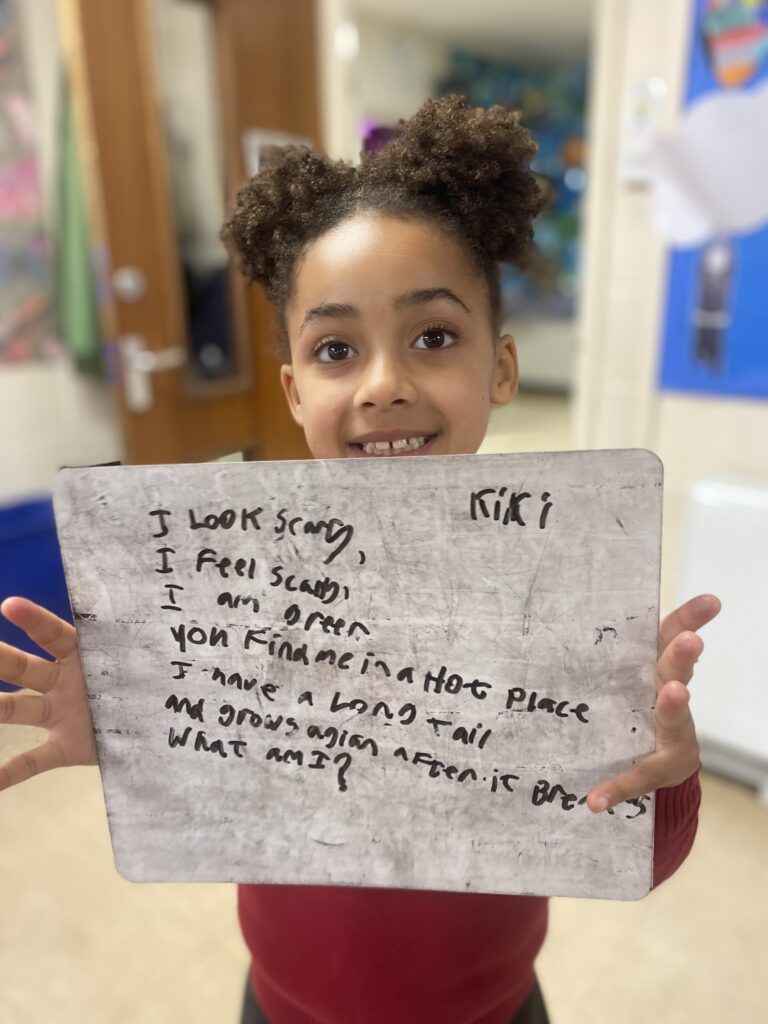 KiKi
I LOOK Scary,
I Feel Scaly,
I am green
you Find me in a Hot Place
I have a Long Tail
and grows agian after it Breaks
What am I?